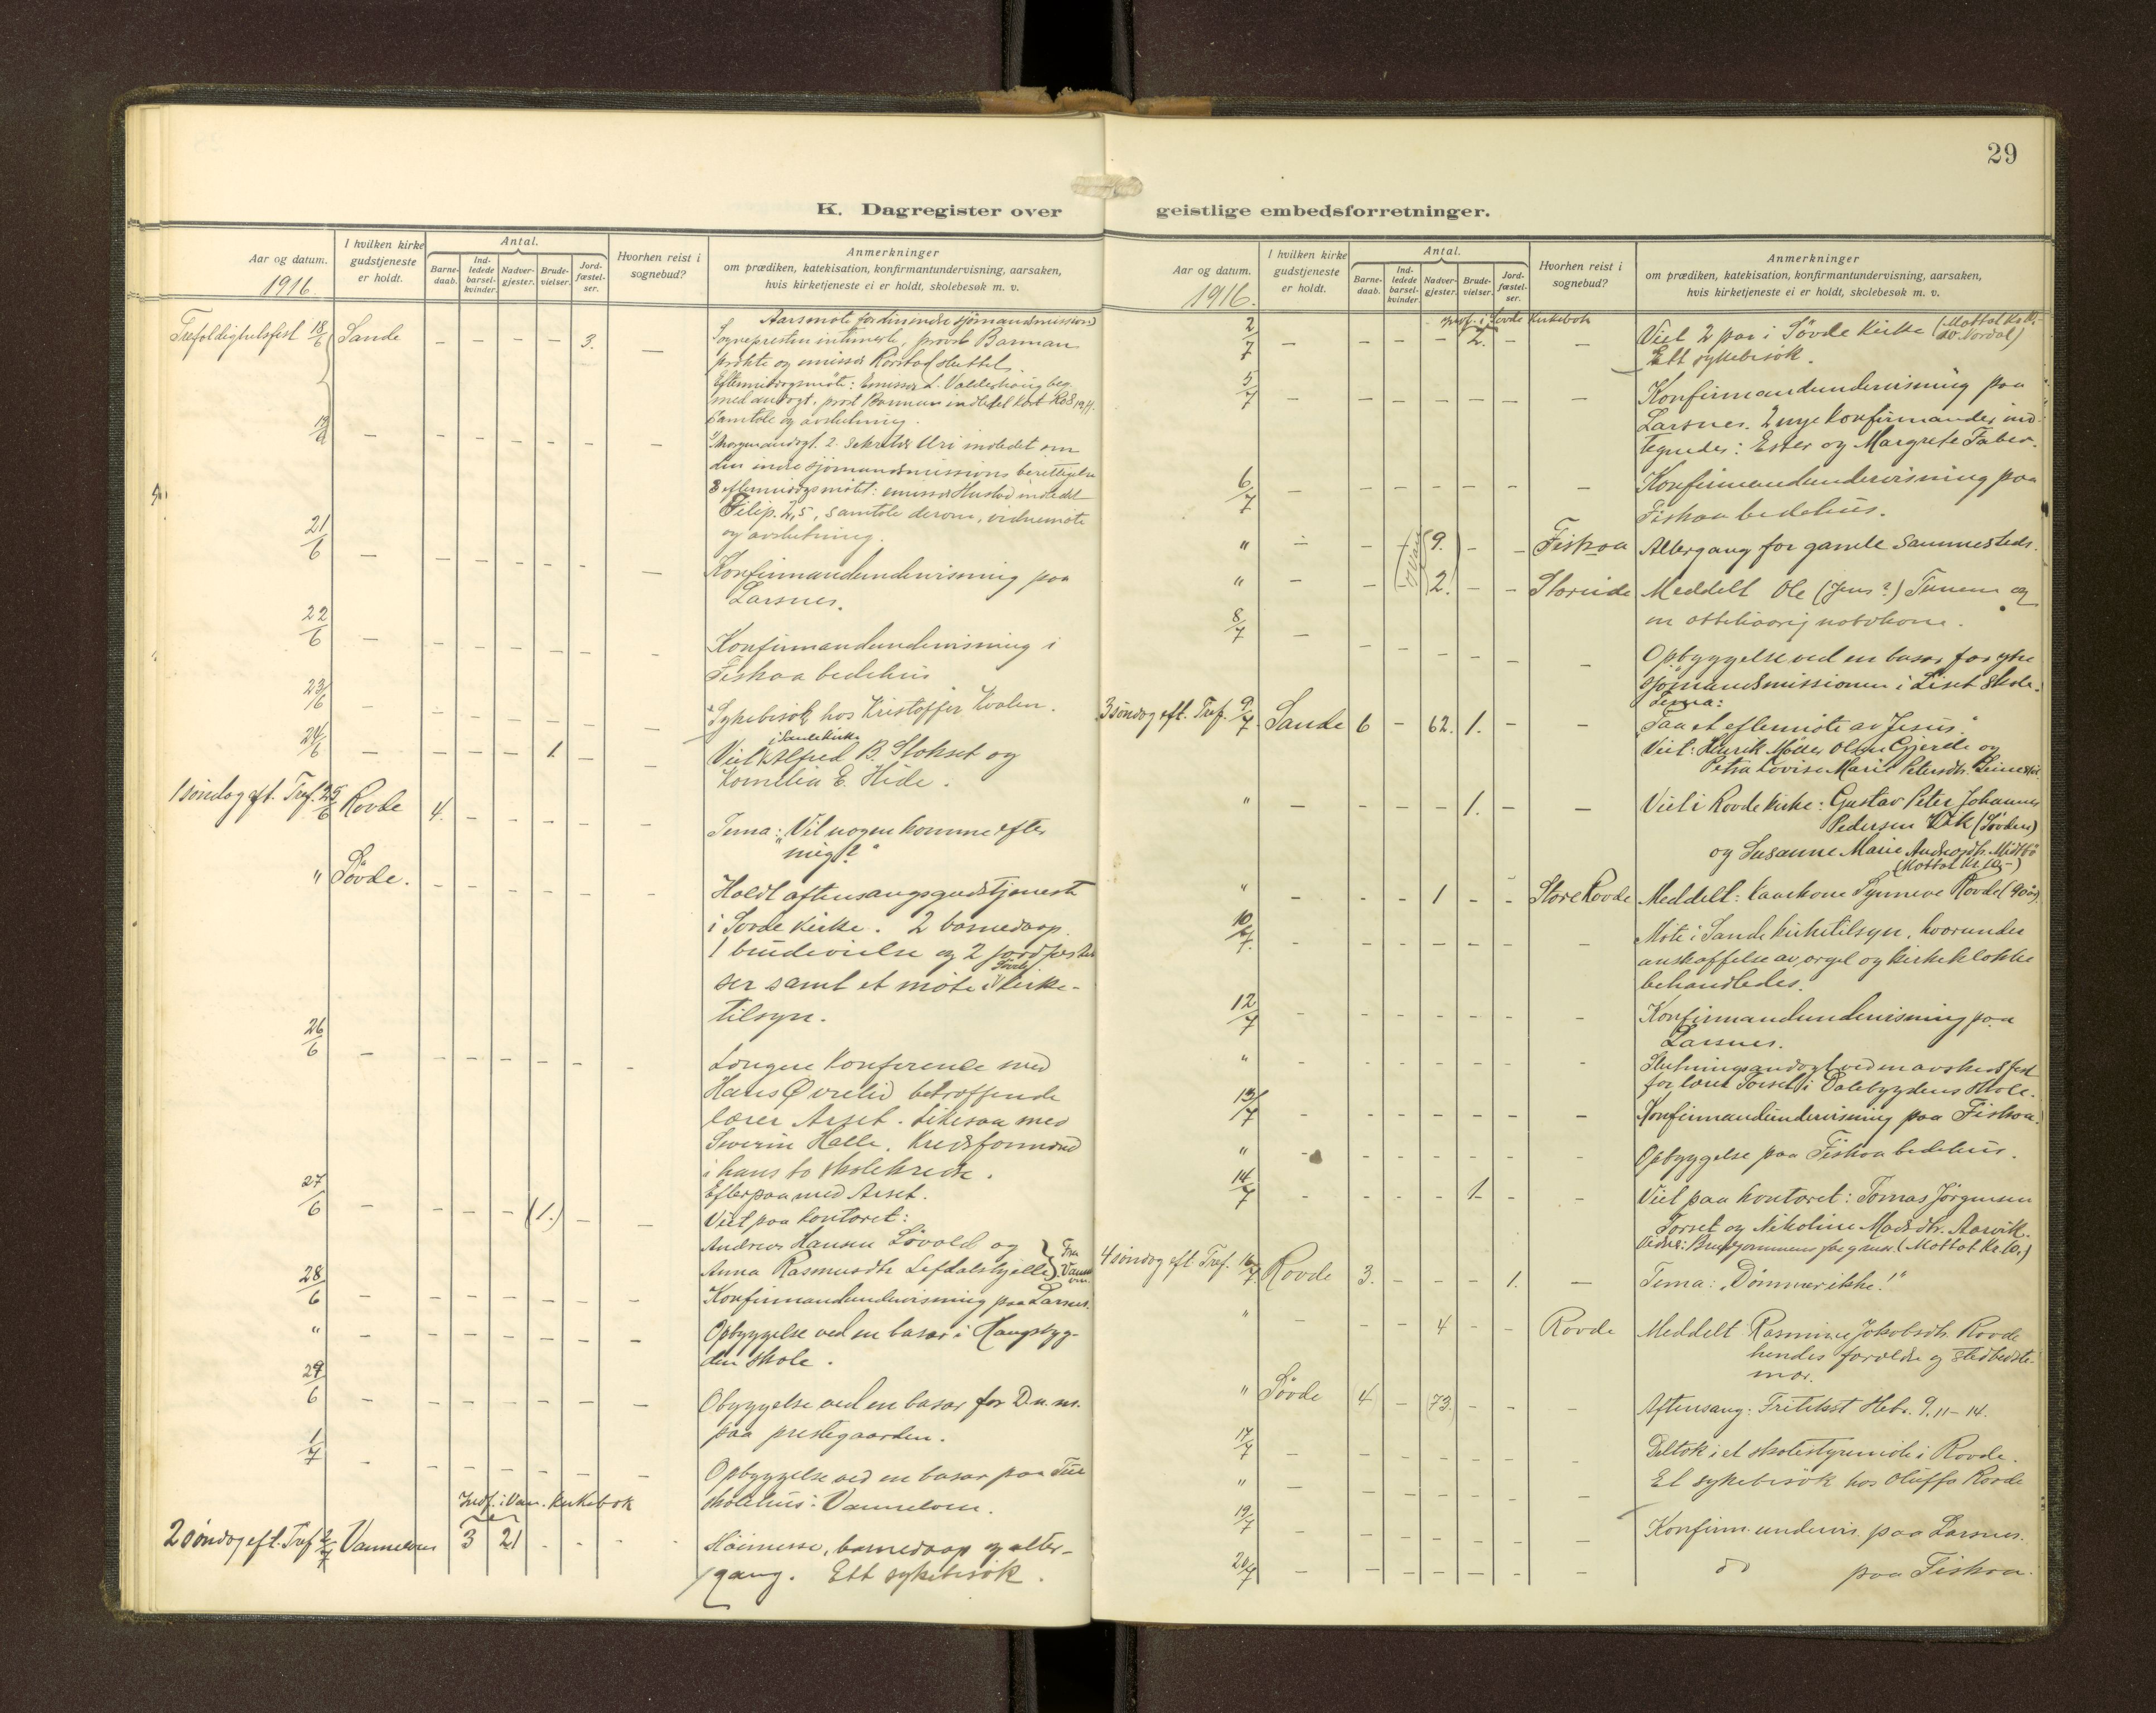 29
K. Dagregister over geistlige embedsforretninger.
Aar og datum. 1916.
I hvilken kirke gudstjeneste er holdt.
Antal.
Barnedaab.
Indledede barselkvinder.
Nadvergjester.
Brudevielser.
Jordfæstelser.
Hvorhen reist i sognebud?
Anmerkninger
om prædiken, katekisation, konfirmantundervisning, aarsaken,
hvis kirketjeneste ei er holdt, skolebesøk m. v.
Trefoldighetsfest 18/6 Sande - - - - 3. - Aarsmøte for den indre sjømandsmission
Sognepresten intimerte, provst Barman
prekte og emissær Rørstad sluttet.
Eftermiddagsmøte: Emissær L. Valderhaug beg.
med andagt, provst Barman indledet
Samtale og avslutning.
19/6 - - - - - - - Morgenandagt. 2. Sekretær Uri indledet om
den indre sjømandsmissions berettigelse
3 eftermiddagsmøtet: emissær Hustad indledet
Filip. 2,5, samtale derom, vidnemøte
og avslutning.
21/6 - - - - - - - Konfirmandundervisning paa
Larsnes.
22/6 - - - - - - - Konfirmandundervisning i
Fiskaa bedehus
23/6 - - - - - - - Sykebesøk hos Kristoffer Kvalen.
24/6 - - - - 1 - - Viet i Sande kirke Alfred B. Stokset og
Kornelia E. Hide.
1 søndag eft. Tref. 25/6 Rovde 4. - - - - - Tema: "Vil nogen komme efter
mig?"
" Søvde. - - - - - - Holdt aftensangsgudstjeneste
i Søvde kirke. 2 barnedaap.
1 brudevielse og 2 jordfæstel
ser samt et møte i Søvde kirke-
tilsyn.
26/6 - - - - - - - Længere konferense med
Hans Øvrelid betræffende
lærer Arset. Likesaa med
Severin Halle, Kredsformand
i hans to skolekredse.
Efterpaa med Arset.
27/6 - - - - (1.) - - Viet paa kontoret:
Andreas Hansen Løvold og
Anna Rasmusdtr Lefdalskjelle } Fra Vannelven
28/6 - - - - - - - Konfirmandundervisning paa Larsnes.
" - - - - - - Opbyggelse ved en basar i Haugsbyg-
den skole.
29/6 - - - - - - - Obyggelse ved en basar for Dn. m.
paa prestegaarden.
1/7 - - - - - - - Opbyggelse ved en basar paa
skolehus i Vannelven.
Indf. i Van. kirkebok
2 søndag eft. Tref 2/7 Vannelven 3 21 - - - Høimesse, barnedaap og alter-
gang. Ett sykebesøk.
Aar og datum. 1916.
I hvilken kirke gudstjeneste er holdt.
Antal.
Barnedaab.
Indledede barselkvinder.
Nadvergjester.
Brudevielser.
Jordfæstelser.
Hvorhen reist i sognebud?
Anmerkninger
om prædiken, katekisation, konfirmantundervisning, aarsaken,
hvis kirketjeneste ei er holdt, skolebesøk m. v.
Indf. i Søvde kirkebok
2/7 - - - - 2. - - Viet 2 par i Søvde kirke
Ett sykebesøk.
5/7 - - - - - - - Konfirmandundervisning paa
Larsnes. 2 nye konfirmander ind-
tegnedes: Ester og Margrete Faber.
6/7 - - - - - - - Konfirmandundervisning paa
Fiskaa bedehus.
" - - - 9. - - Fiskaa Altergang for gamle sammesteds.
" - - - 2. - - Storeide Meddelt Ole (Jens?) Tunem og
en ottetiaarig
8/7 - - - - - - - Opbyggelse ved en basar for ytre
sjømandsmissionen i Liset skole.
3 søndag eft. Tref. 9/7 Sande 6 - 62. 1. - - Tema:
"Faa et eftermøte av Jesus".
Viet: Henrik Møller Olsen Gjerde og
Petra Lovise Marie Petersdtr.
" - - - - 1. - - Viet i Rovde kirke: Gustav Peter Johannes
Pedersen Vik (Søvden)
og Susanne Marie Andreasdtr. Midtbø
(Mottat Kr. 10,-)
" - - - 1 - - Store Rovde Meddelt: kaarkone Synneve Rovde (90 år)
10/7. - - - - - - - Møte i Sande kirketilsyn, hvorunder
anskaffelse av orgel og kirkeklokke
behandledes.
12/7 - - - - - - - Konfirmandundervisning paa
Larsnes.
" - - - - - - - Slutningsandagt ved en avskedsfest
for lærer Torset i Dalebygdens skole.
13/7 - - - - - - - Konfirmandundervisning paa Fiskaa.
" - - - - - - - Opbyggelse paa Fiskaa bedehus.
14/7 - - - - 1 - - Viet paa kontoret: Tomas Jørgensen
Torset og Nikoline Madsdtr. Aarvik.
(Mottat Kr. 10,)
4 søndag eft. Tref. 16/7. Rovde 3. - - - 1. - Tema: "Dømmer ikke!"
" - - - 4 - - Rovde Meddelt Rasmine Jakobsdtr. Rovde
hendes forældre og stedbedste-
mor.
" Søvde 4 - (73) - - - Aftensang. Fritekst Hebr. 9, 11-14.
17/7 - - - - - - - Deltok i et skolestyremøte i Rovde.
" - - - - - - - Et sykebesøk hos Oluffa Rovde
19/7 - - - - - - - Konfirm. undervis. paa Larsnes.
20/7 - - - - - - - do paa Fiskaa.